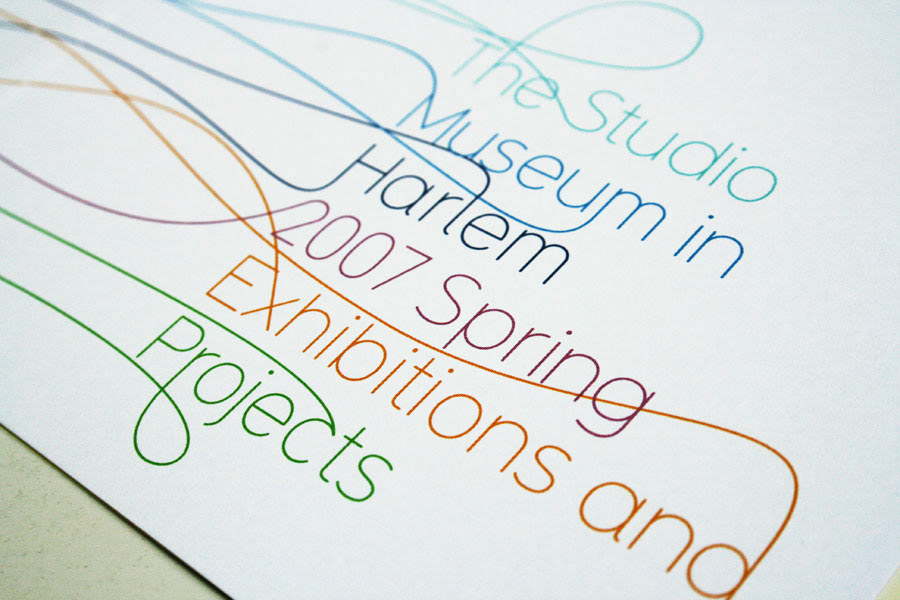 The Studio
Museum in
Harlem
2007 Spring
Exhibitions and
Projects